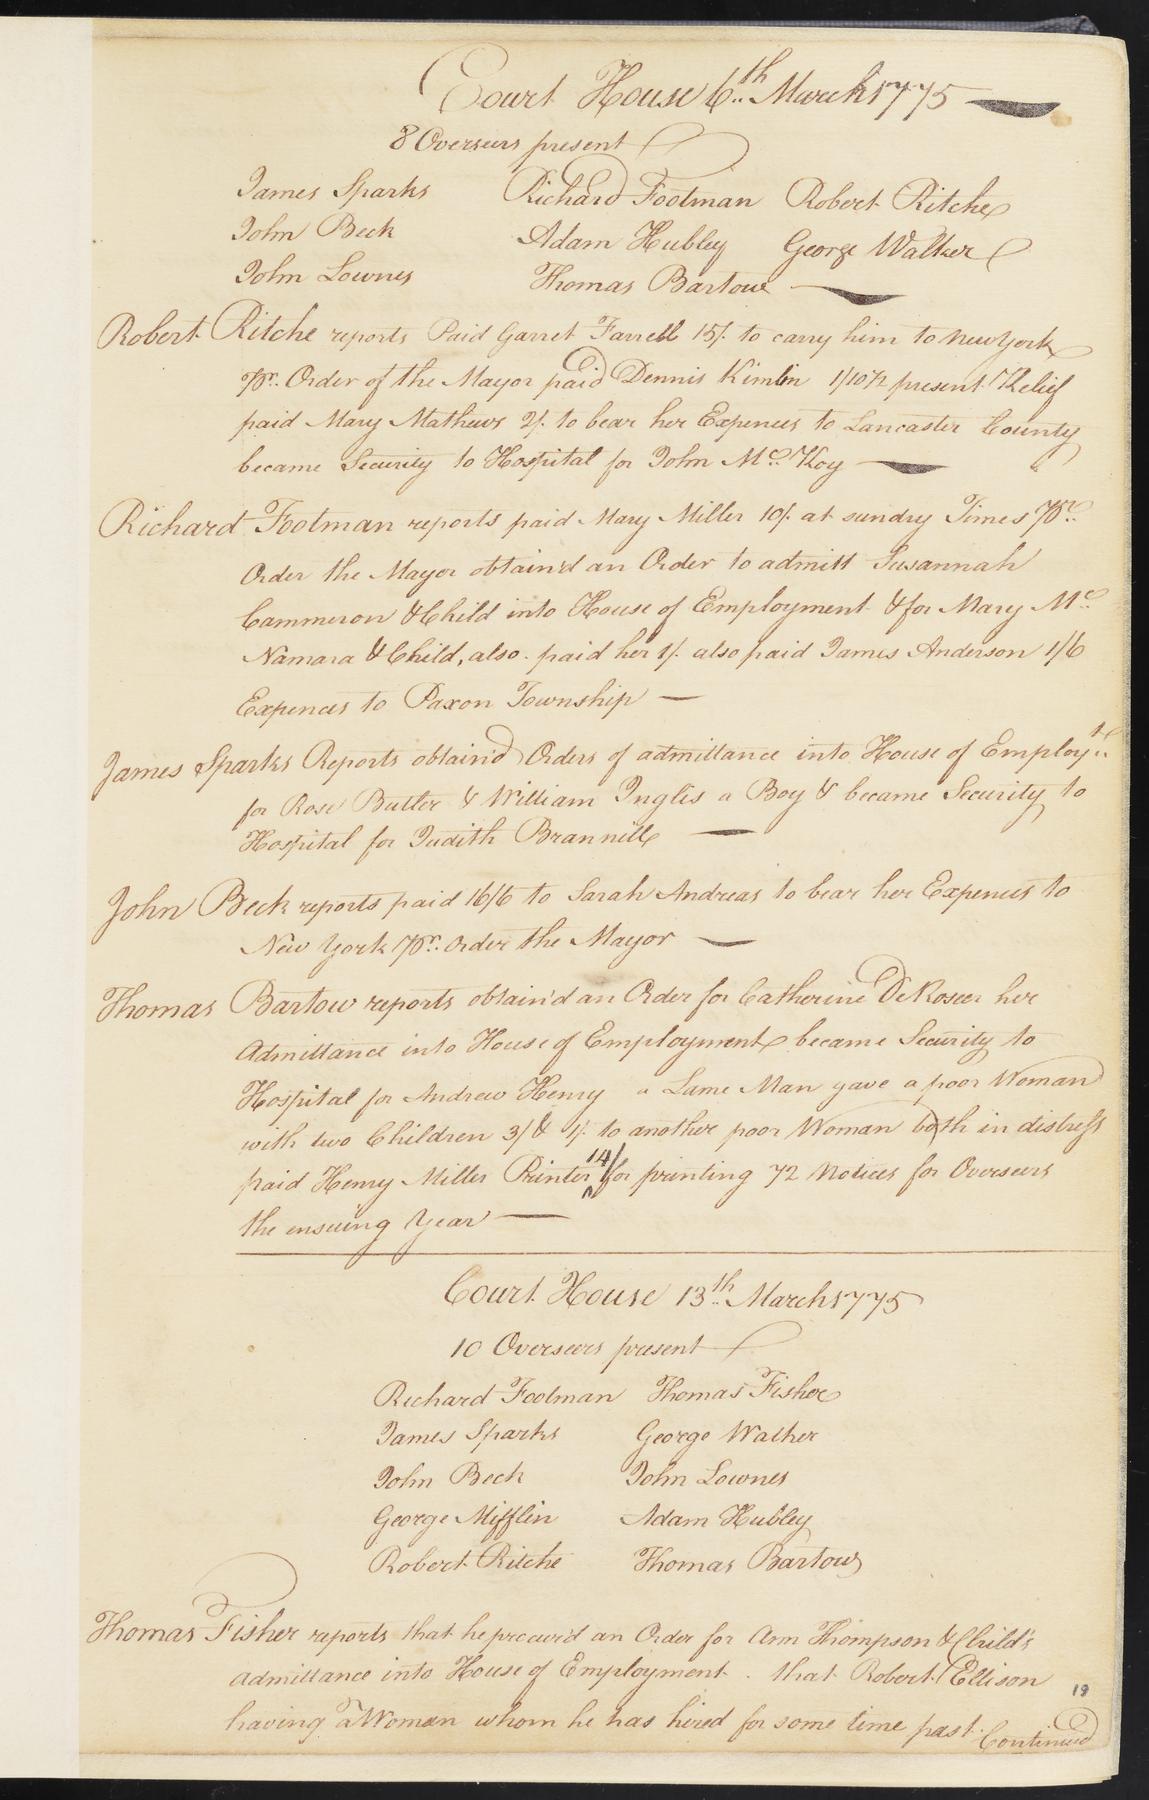 Court House 6th March 1775
8 Overseers present
James Sparks Richard Footman Robert Ritche
John Beck Adam Hubley George Walker
John Lownes Thomas Bartow
Robert Ritche reports Paid Garret Farrell 15/. to carry him to New York
Pr. Order of the Mayor paid Dennis Kimlin 1/10½ present Relief
paid Mary Mathews 2/. to bear her Expences to Lancaster County
became Security to Hospital for John Mc. Koy
Richard Footman reports paid Mary Miller 10/. at sundry Times Pr.
Order the Mayor obtain'd an Order to admitt Susannah
Cammeron & Child into House of Employment & for Mary Mc.
Namara & Child, also paid her 1/. also paid James Anderson 1/6
Expences to Paxon Township
James Sparks Reports obtain'd Orders of admittance into House of Employt.
for Rose Butler & William Inglis a Boy & became Security to
Hospital for Judith Brannill
John Beck reports paid 16/6 to Sarah Andreas to bear her Expences to
New York Pr. Order the Mayor
Thomas Bartow reports obtain'd an Order for Catherine DeRoseer her
Admittance into House of Employment became Security to
Hospital for Andrew Henry a Lame Man gave a poor Woman
with two Children 3/. & 1/. to another poor Woman both in distress
paid Henry Miller Printer 14/ for printing 72 Notices for Overseers
the ensuing Year
Court House 13th. March 1775
10 Overseers present
Richard Footman Thomas Fisher
James Sparks George Walker
John Beck John Lownes
George Mifflin Adam Hubley
Robert Ritche Thomas Bartow
Thomas Fisher reports that he procur'd an Order for Ann Thompson & Child's
admittance into House of Employment. that Robert Ellison
having a Woman whom he has hired for some time past.
19
Continued